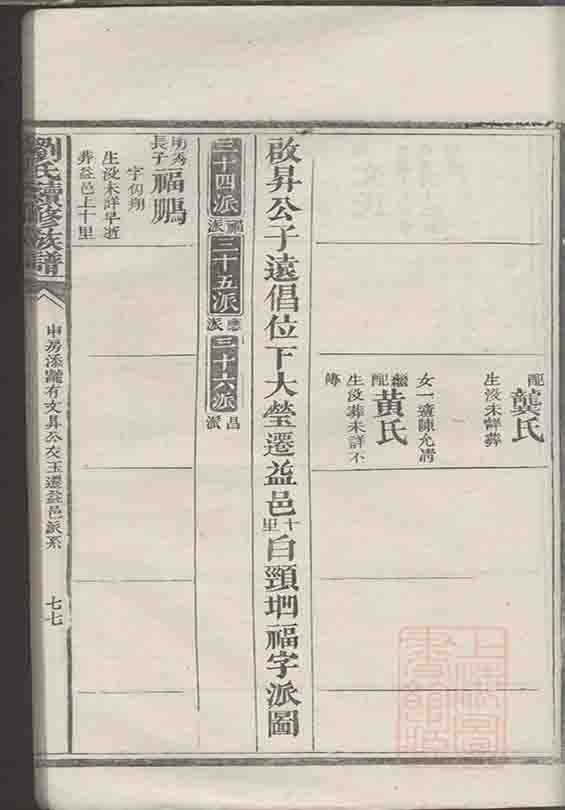 配龔氏
生没未詳葬
女一適陳允凊
繼配黄氏
生没葬未詳不
傳
啟昇公子遠倡位下大瑩遷益邑十里白頸垇福字派圖
三十四派福派
三十五派應派
三十六派昌派
長子福鵬
字翔
生没未詳早逝
葬益邑上十里
劉氏續修族譜
申房添寵有文具公交玉遷益邑派系
七七